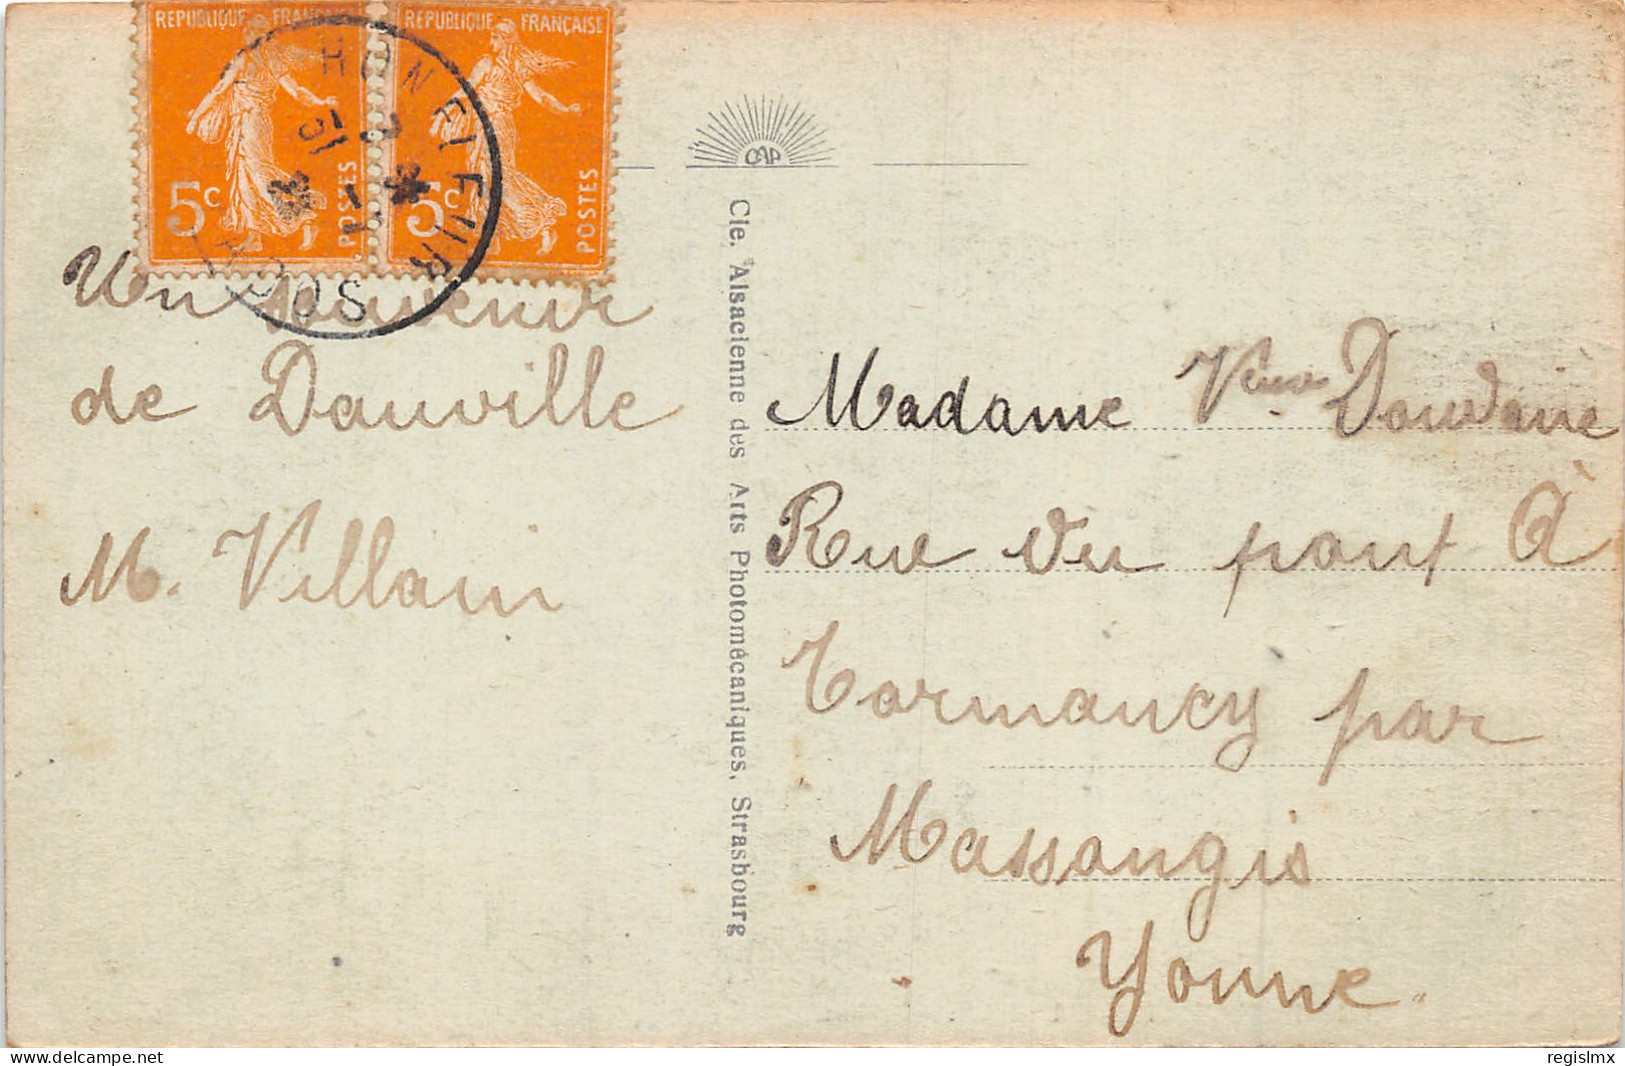 REPUBLIQUE FRANÇAISE
5c POSTES
REPUBLIQUE FRANÇAISE
5c POSTES
HONFLEUR
31
Un souvenir
de Dauville
M. Villain
CAP
Cie. Alsacienne des Arts Photomécaniques, Strasbourg
Madame Veuve Doudaine
Rue du pont à
Tormancy par
Massangis
Yonne.
delcampe.net
regislmx